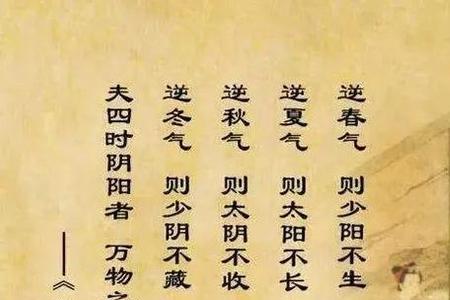 逆春气 则少阳不生
逆夏气 则太阳不长
逆秋气 则太阴不收
逆冬气 则少阴不藏
夫四时阴阳者 万物之
——《